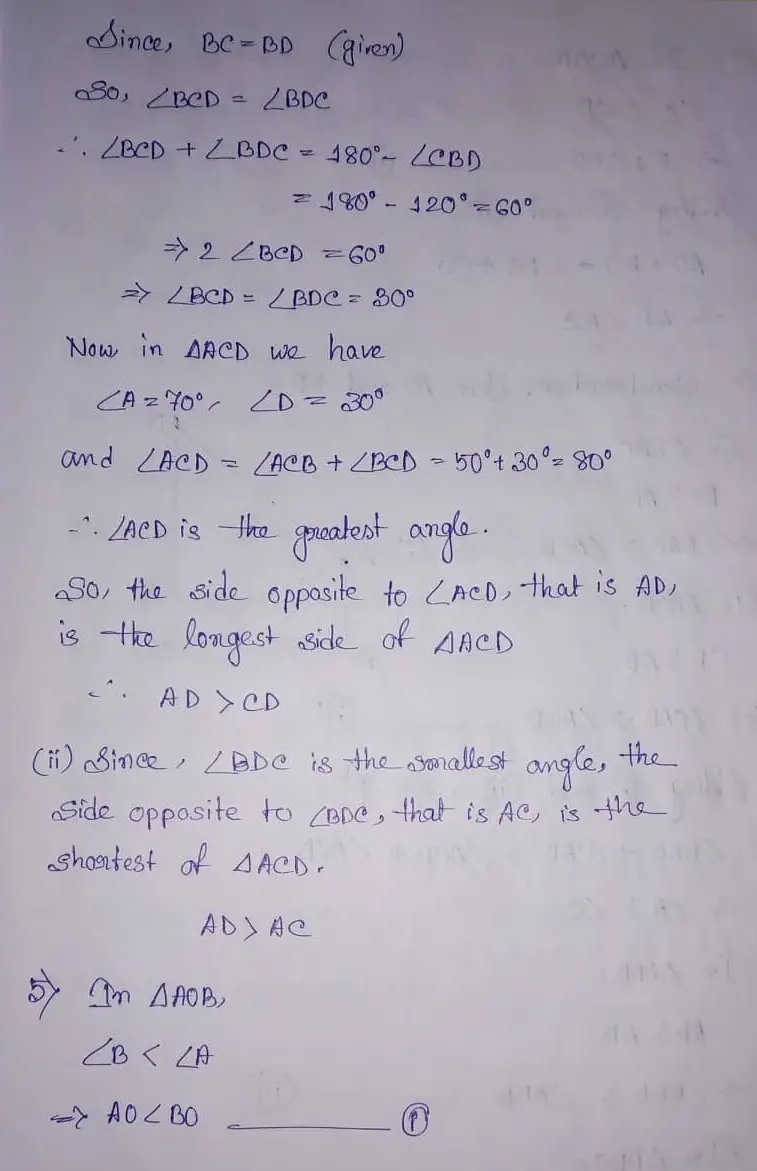 Since, BC = BD (given)
So, ∠BCD = ∠BDC
∴ ∠BCD + ∠BDC = 180° - ∠CBD
= 180° - 120° = 60°
⇒ 2 ∠BCD = 60°
⇒ ∠BCD = ∠BDC = 30°
Now in ΔACD we have
∠A = 70°, ∠D = 30°
and ∠ACD = ∠ACB + ∠BCD = 50° + 30° = 80°
∴ ∠ACD is the greatest angle.
So, the side opposite to ∠ACD, that is AD,
is the longest side of ΔACD
∴ AD > CD
(ii) Since, ∠BDC is the smallest angle, the
side opposite to ∠BDC, that is AC, is the
shortest of ΔACD.
AD > AC
5) In ΔAOB,
∠B < ∠A
⇒ AO < BO ______ (i)